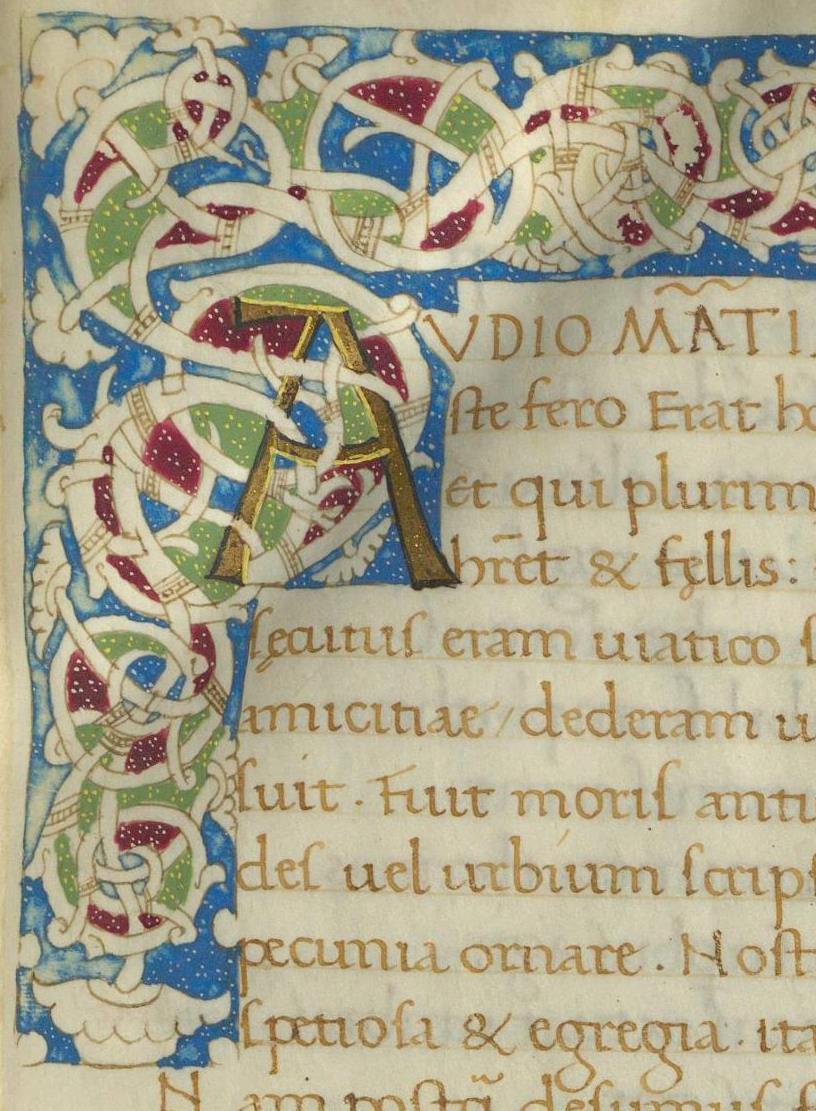 AVDIO MÃTI
ſte fero Erat ho
et qui plurim
hr̄et & fęllis:
ſęcutuſ eram uiatico ſ
amicitiae / dederam u
ſuit. Fuit moriſ antı
deſ uel urbium ſcripſ
pecunia ornare. Noſt
ſpetioſa & egregia. ita
Nam poſtq̃ deſimuſ f